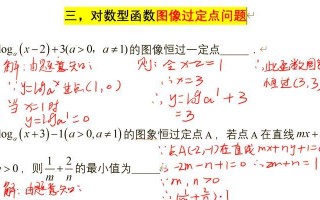 三，对数型函数图像过定点问题
log_a(x-2)+3(a>0，a≠1)的图像恒过一定点______.
解：由题意知：
∵y=log_a^x过点(1,0)
当x=1时
y=log_a^1=0
则：令x-2=1
∴x=3
y=log_a^1+3
=3
∴此函数图
恒过(3,3)
log_a(x+3)-1(a>0,a≠1)的图象恒过定点A，若点A在直线mx+
>0，则1/m+2/n的最小值为______.
解：由题意知：
∵点A(-2,-1)在直线mx+ny+1=0
∴-2m-n+1=0 ∴2m+n=1
∵m,n>0